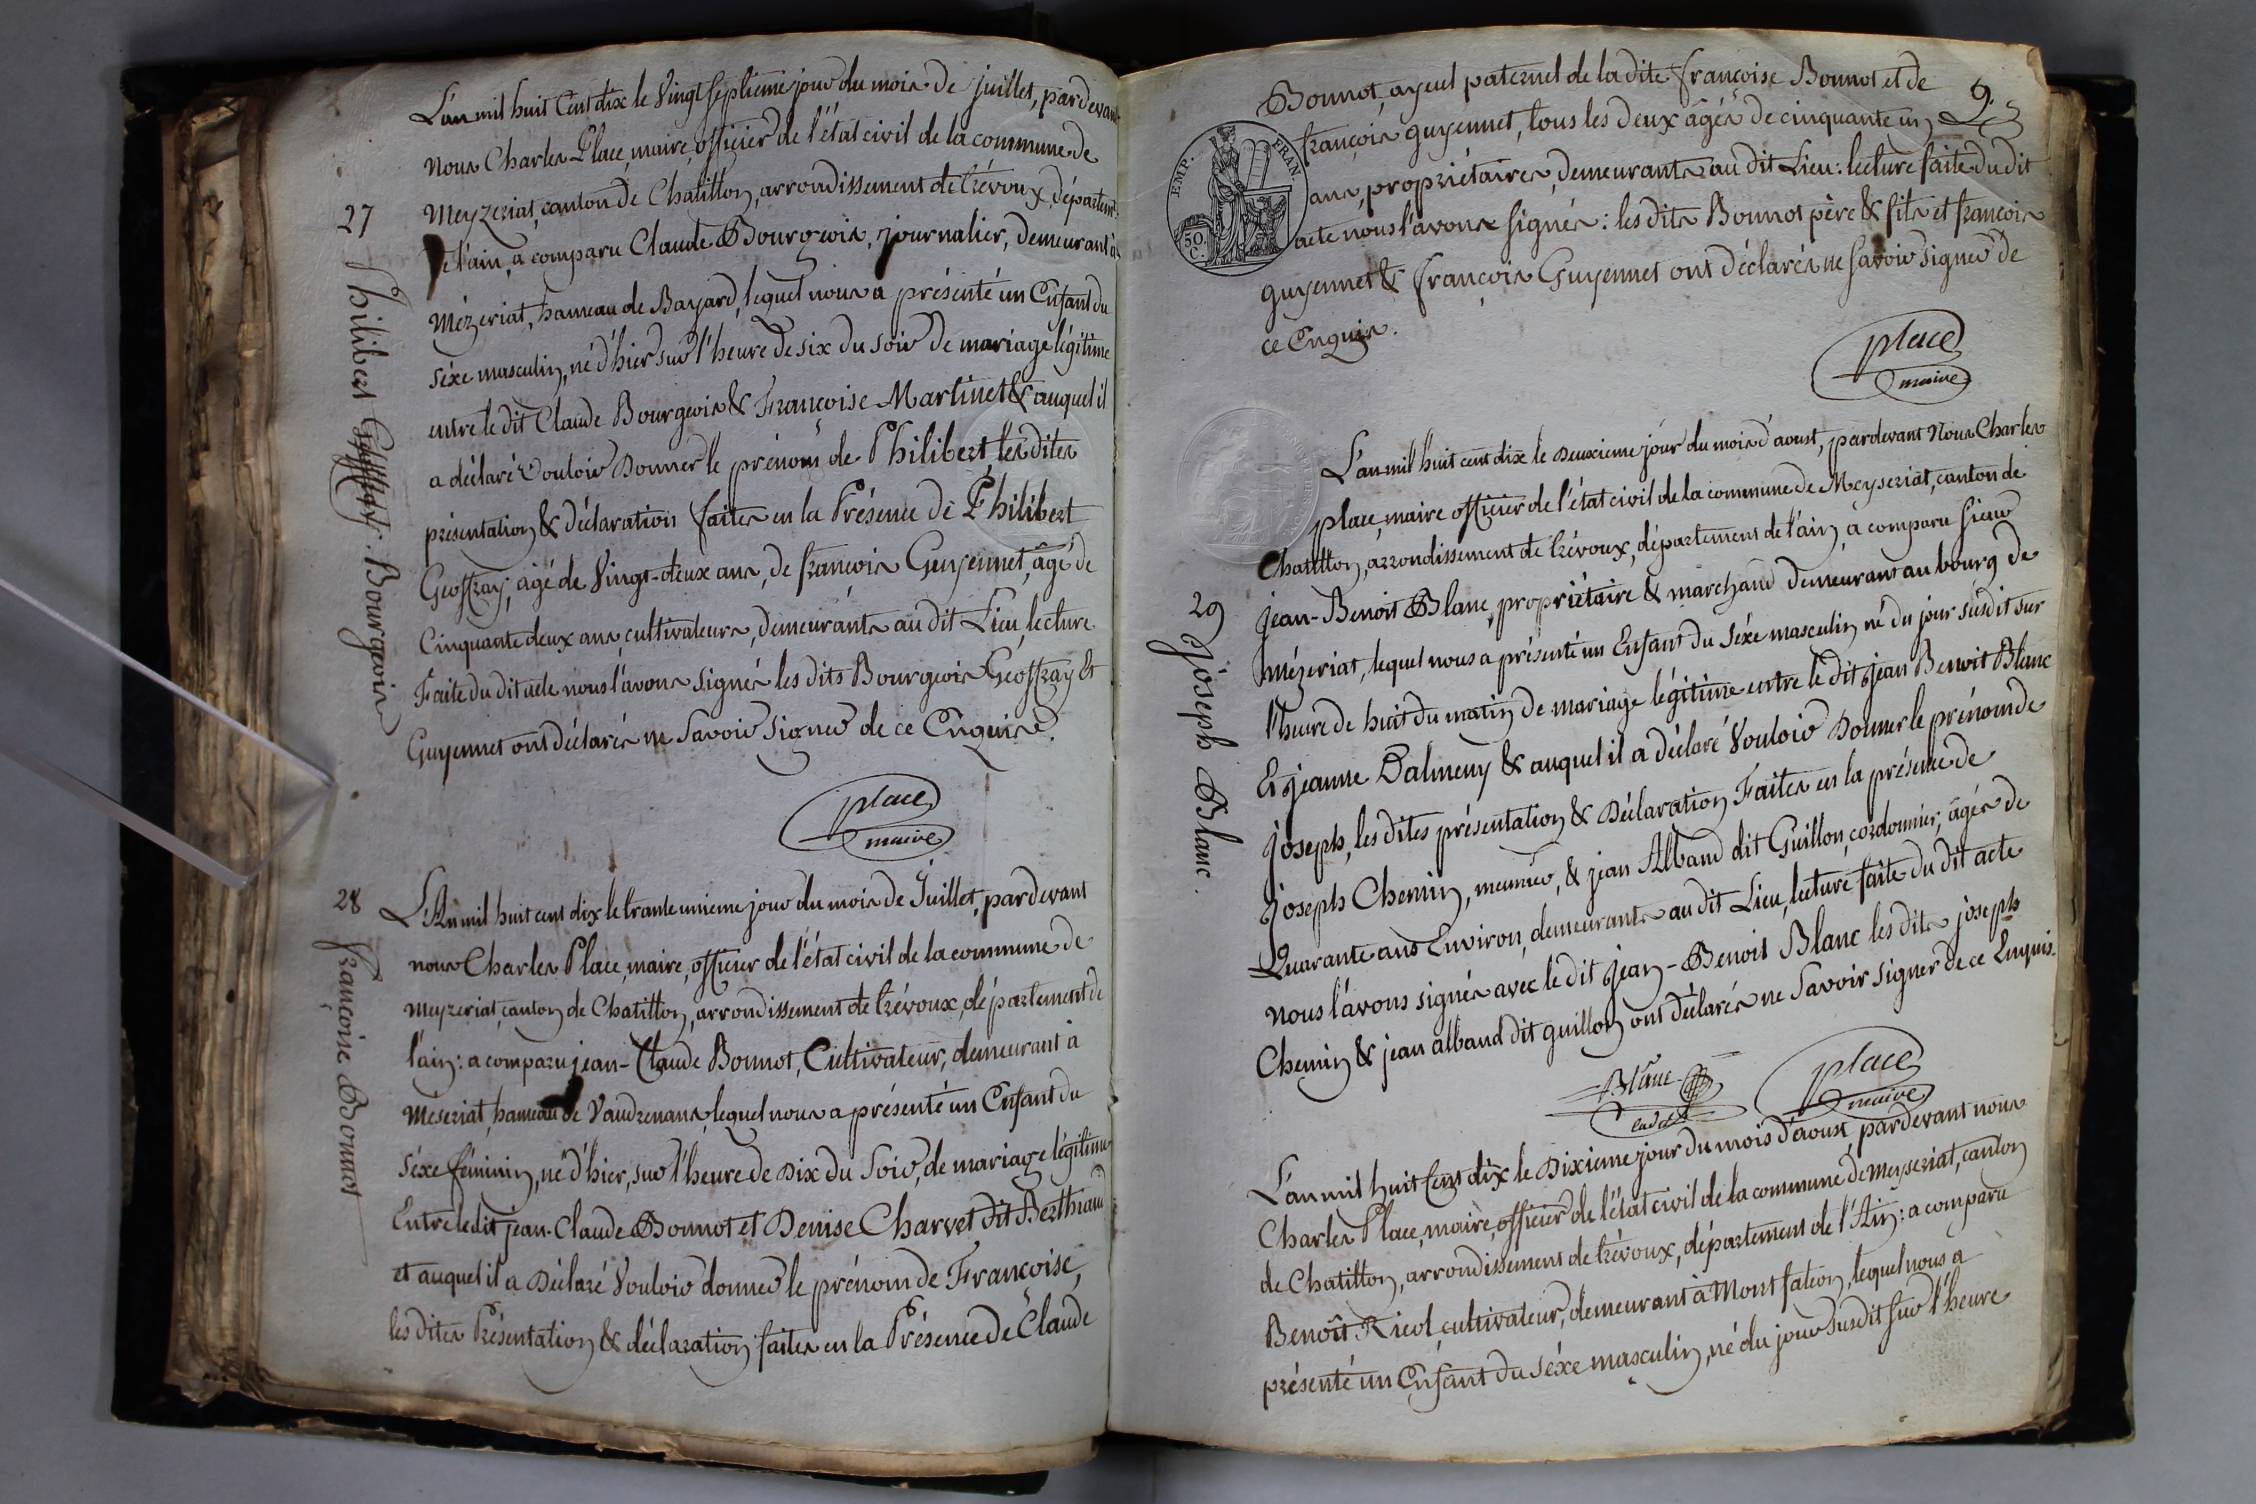 L'an mil huit Cent dix le Vingt septieme jour du mois de juillet, pardevant
nous Charles Place, maire, officier de l'état civil de la commune de
Meyzeriat, canton de Chatillon, arrondissement de trévoux, départemt.
de l'ain, a comparu Claude Bourgeois, journalier, demeurant à
Mézeriat, hameau de Bayard, lequel nous a présenté un Enfant du
séxe masculin, né d'hier sur l'heure de six du soir de mariage légitime
entre le dit Claude Bourgeois & Françoise Martinet & auquel il
a déclaré vouloir Donner le prénom de Philibert, les dites
présentation & déclaration faites en la Présence de Philibert
Geoffray, agé de Vingt-deux ans, de françois Guyennet, âgé de
Cinquante deux ans, cultivateurs, demeurants au dit Lieu, lecture
Faite du dit acte nous l'avons signés les dits Bourgeois Geoffray &
Guyennet ont déclarés ne Savoir Signer de ce Enquis.
place
maire
27
Philibert Geoffray. Bourgeois
L'An mil huit cent dix le trante unieme jour du mois de Juillet, pardevant
nous Charles Place, maire, officier de l'état civil de la commune de
Meyzeriat, canton de Chatillon, arrondissement de trévoux, département de
l'ain: a comparu jean-Claude Bonnot, Cultivateur, demeurant à
Meseriat, hameau de Vaudrenans, lequel nous a présenté un Enfant du
séxe féminin, né d'hier, sur l'heure de Dix du Soir, de mariage légitime
Entre ledit jean-Claude Bonnot et Denise Charvet dit Berthiaud
et auquel il a Déclaré Vouloir donner le prénom de Françoise,
les dites Présentation & déclaration faites en la Présence de Claude
28
françoise Bonnot
9.
Bonnot, ayeul paternel de la dite françoise Bonnot et de
françois guyennet, tous les deux âgés de cinquante un
ans, propriétaires, demeurants au dit Lieu: lecture faite du dit
acte nous l'avons signés: les dits Bonnot père & fils et françois
guyennet & françois Guyennet ont déclarés ne savoir signer de
ce Enquis.
EMP. FRAN.
50.
C.
place
maire
L'an mil huit cent dix le Deuxieme jour du mois d'aoust, pardevant Nous Charles
place, maire officier de l'état civil de la commune de Meyseriat, canton de
Chatillon, arrondissement de trévoux, département de l'ain, a comparu sieur
jean-Benoit Blanc, propriétaire & marchand demeurant au bourg de
Mézeriat, lequel nous a présenté un Enfant du séxe masculin né du jour susdit sur
l'heure de huit du matin de mariage légitime entre le dit jean Benoit Blanc
Et jeanne Dalmeny & auquel il a déclaré Vouloir Donner le prénom de
Joseph, les dites présentation & Déclaration Faites en la présence de
Joseph Chemin, meunier, & jean Alband dit Guillon, cordonnier, âgés de
Quarante ans Environ, demeurants au dit Lieu, lecture faite du dit acte
nous l'avons signés avec le dit jean-Benoit Blanc les dits joseph
Chemin & jean alband dit guillon ont déclarés ne Savoir signer de ce Enquis.
29
Joseph Blanc.
Blanc
cadet
place
maire
L'an mil huit Cent dix le Dixieme jour du mois d'aoust, pardevant nous
Charles Place, maire, officier de l'état civil de la commune de Meyseriat, canton
de Chatillon, arrondissement de trévoux, département de l'Ain: a comparu
Benoît Ricol, cultivateur, demeurant à Montfalcon, lequel nous a
présenté un Enfant du séxe masculin, né du jour susdit sur l'heure